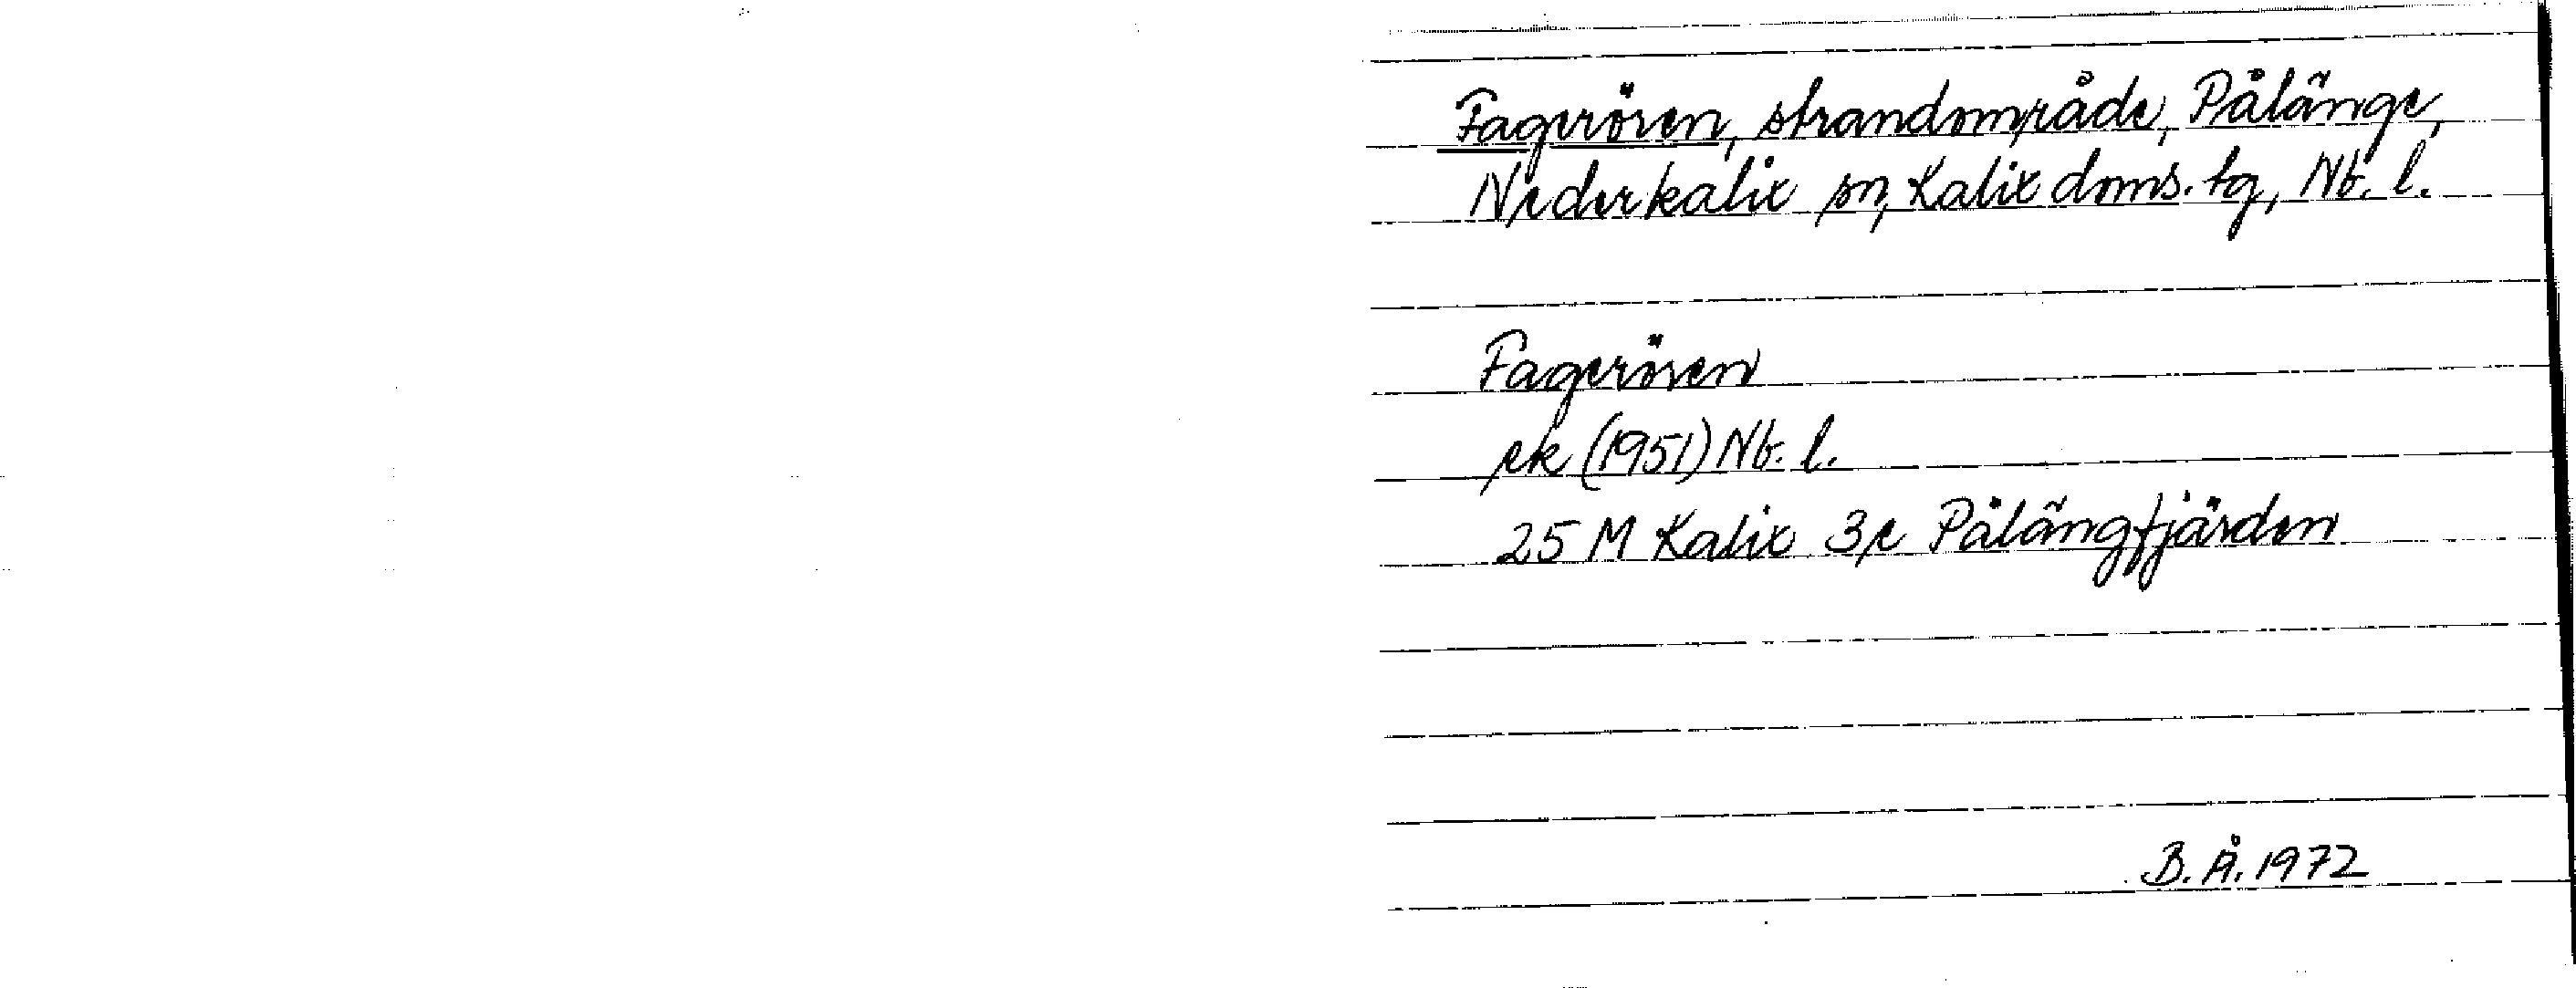 Fageröven, strandområde, Pålänge,
Nederkalix sn, Kalix doms. tg, Nb. l.
Fageröven
ek (1951) Nb. l.
25 M Kalix 3e Pålängfjärden
B. Å. 1972